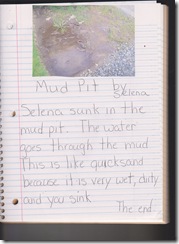 Mud Pit by
Selena
Selena sunk in the
mud pit. The water
goes through the mud
This is like quicksand
because it is very wet, dirty
and you sink
The end